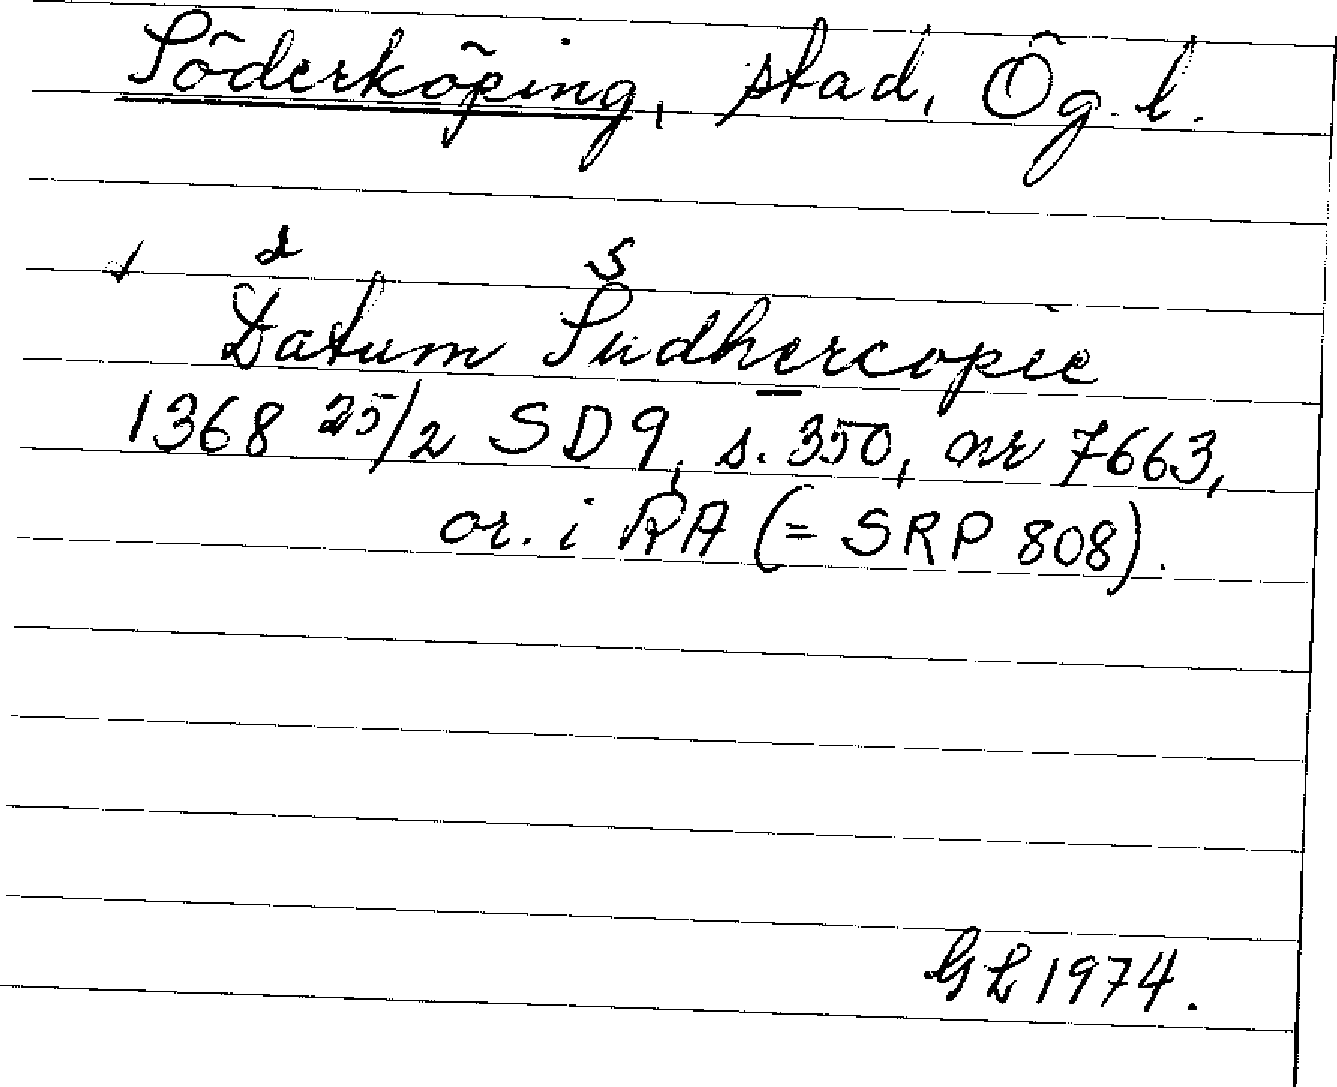 Söderköping, stad, Ög. l.
+ d s
Datum Sudhercopie
1368 25/2 SD 9, s. 350, nr 7663,
or. i RA (= SRP 808).
GL 1974.